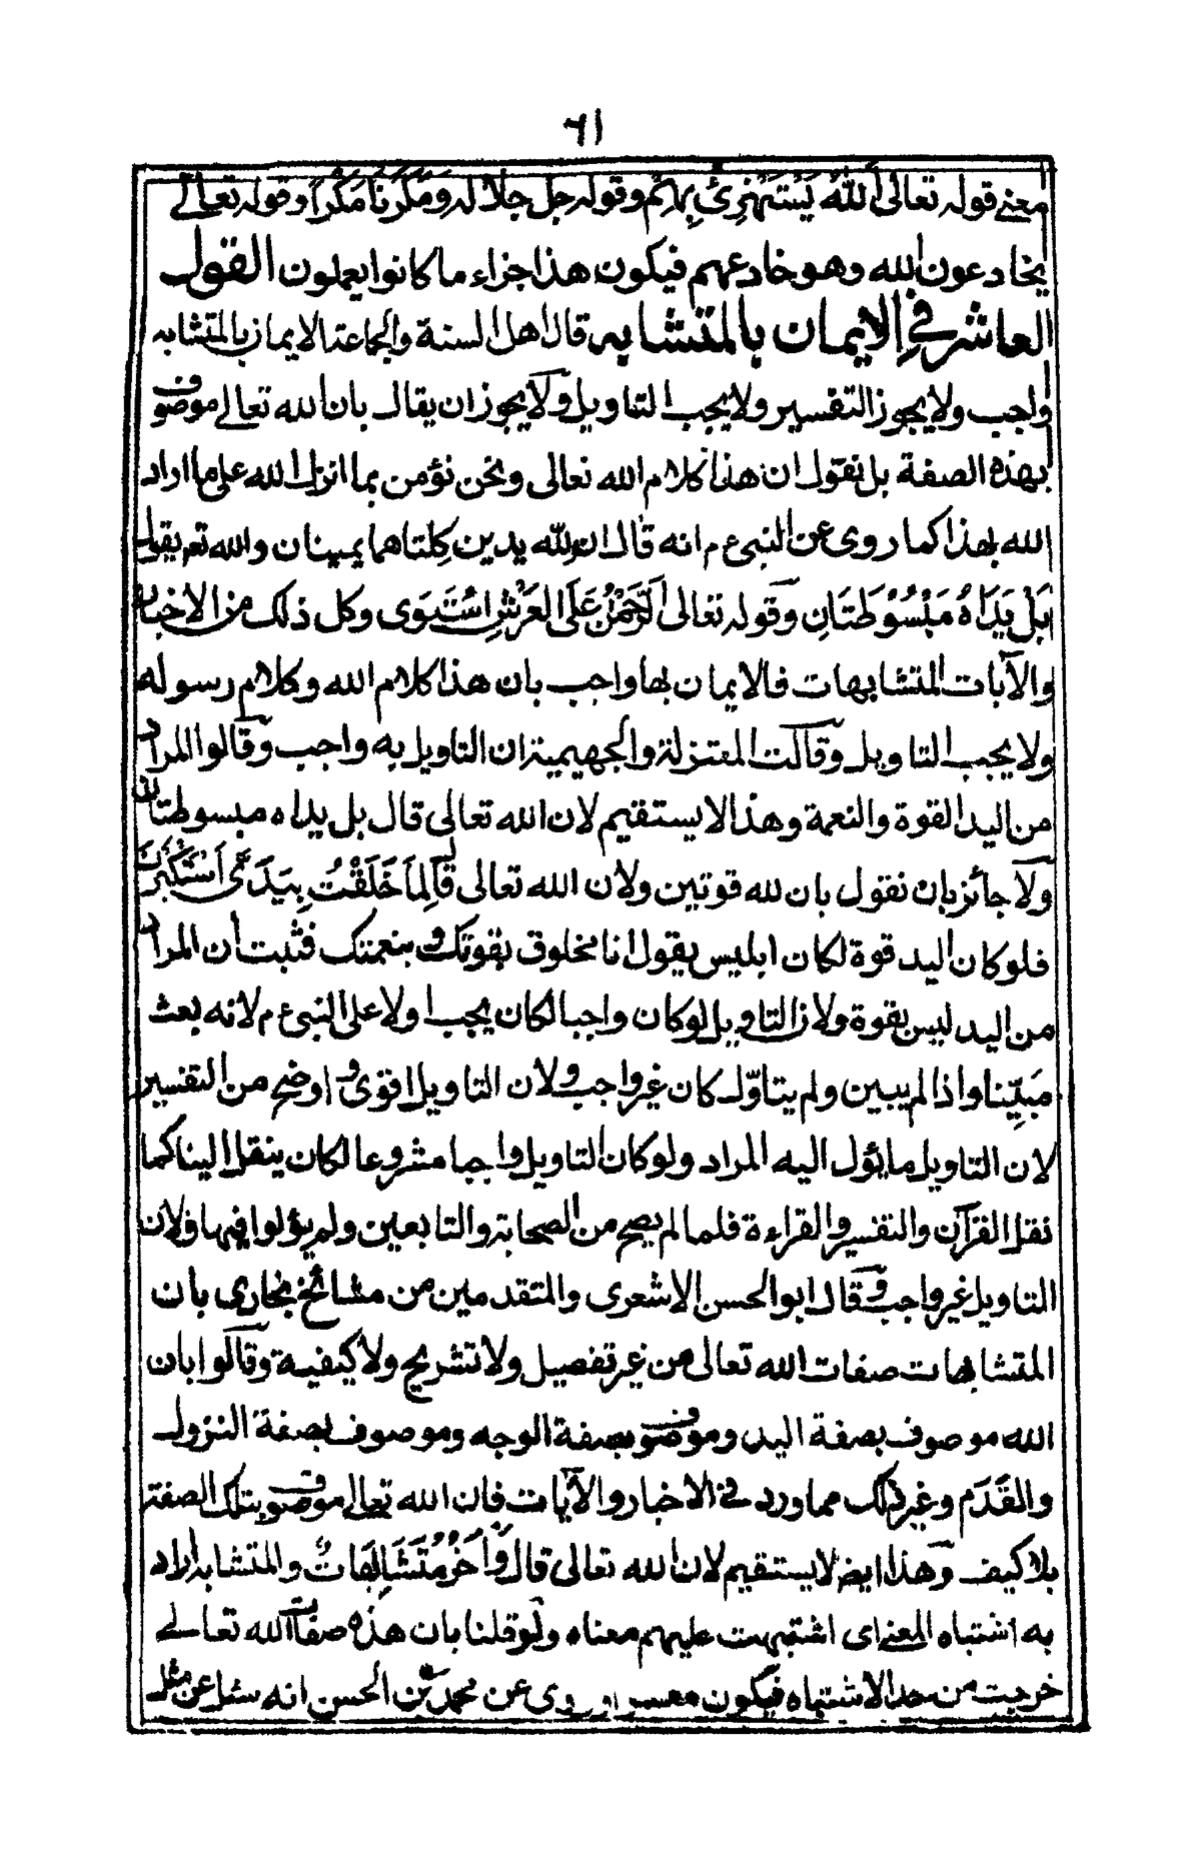 ٦١
معنى قوله تعالى اَللّٰهُ يَسْتَهْزِئُ بِهِمْ وقوله جل جلاله وَمَكَرْنَا مَكْرًا وقوله تعالى
يخادعون الله وهو خادعهم فيكون هذا جزاء ما كانوا يعملون القول
العاشر في الايمان بالمتشابه قال اهل السنة والجماعة الايمان بالمتشابه
واجب ولا يجوز التفسير ولا يجب التاويل ولا يجوز ان يقال بان الله تعالى موصوف
بهذه الصفة بل نقول ان هذا كلام الله تعالى ونحن نؤمن بما انزل الله على ما اراد
الله بهذا كما روى عن النبى ع م انه قال ان لله يدين كلتاهما يمينان والله تع يقول
بَلْ يَدَاهُ مَبْسُوطَتَانِ وقوله تعالى اَلرَّحْمٰنُ عَلَى العَرْشِ اسْتَوَى وكل ذلك من الاخبار
والآيات المتشابهات فالايمان بها واجب بان هذا كلام الله وكلام رسوله
ولا يجب التاويل وقالت المعتزلة والجهيمية ان التاويل به واجب وقالوا المراد
من اليد القوة والنعمة وهذا لا يستقيم لان الله تعالى قال بل يداه مبسوطتان
ولا جائز بان نقول بان لله قوتين ولان الله تعالى قال لِمَا خَلَقْتُ بِيَدَىَّ اَسْتَكْبَرْتَ
فلو كان اليد قوة لكان ابليس يقول انا مخلوق بقوتك وبنعمتك فثبت أن المراد
من اليد ليس بقوة ولان التاويل لو كان واجبا لكان يجب اولا على النبى ع م لانه بعث
مَبيِّنا واذا لم يبين ولم يتاوّل كان غير واجب ولان التاويل اقوى و اوضح من التفسير
لان التاويل ما يؤل اليه المراد ولو كان التاويل واجبا مشروعا لكان ينقل الينا كما
نقل القرآن والتفسير والقراءة فلما لم يصح من الصحابة والتابعين ولم يؤلوا فيها فلان
التاويل غير واجب وقال ابو الحسن الاشعرى والمتقدمين من مشائخ بخارى بان
المتشابهات صفات الله تعالى من غير تفصيل ولا تشريح ولا كيفية وقالوا بان
الله موصوف بصفة اليد وموصوف بصفة الوجه وموصوف بصفة النزول
والقَدَم وغير ذلك مما ورد في الاخبار والآيات فان الله تعالى موصوف بتلك الصفة
بلا كيف وهذا ايض لا يستقيم لان الله تعالى قال وَاُخَرُ مُتَشَابِهَاتٌ والمتشابه اراد
به اشتباه المعنى اى اشتبهت عليهم معناه ولو قلنا بان هذه صفات الله تعالى
خرجت من حد الاشتباه فيكون روى عن محمد بن الحسن انه سئل عن مثل